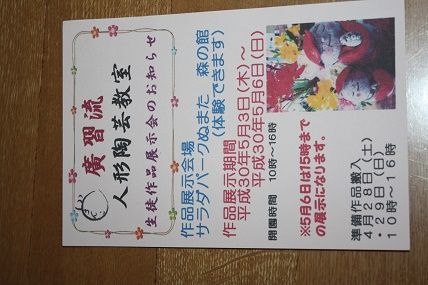 廣習流
人形陶芸教室
生徒作品展示会のお知らせ
作品展示会場
サラダパークぬまた　森の館
(体験できます)
作品展示期間
平成30年5月3日(木)～
平成30年5月6日(日)
開園時間　10時～16時
※5月6日は15時まで
の展示になります。
準備作品搬入
4月28日(土)
・29日(日)
10時～16時